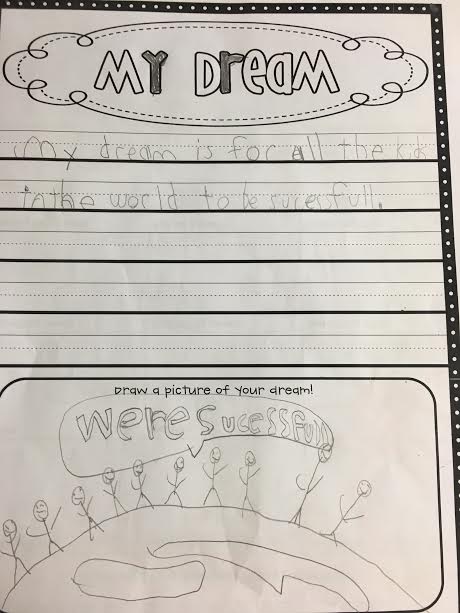 My DreaM
My dream is for all the kids
in the world to be sucessfull.
Draw a picture of your dream!
Were Sucessfull